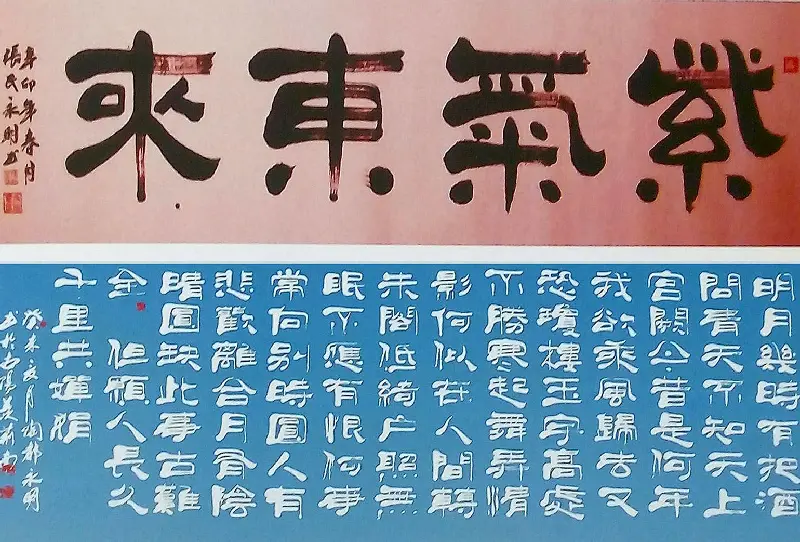 紫氣東來
辛卯年春月
明月幾時有把酒
問青天不知天上
宮闕今昔是何年
我欲乘風歸去又
恐瓊樓玉宇高處
不勝寒起舞弄情
影何似在人間轉
朱閣低綺户照無
眠不應有恨何事
常向別時圓人有
悲歡離合月有陰
晴圓缺此事古難
全 但願人長久
千里共嬋娟